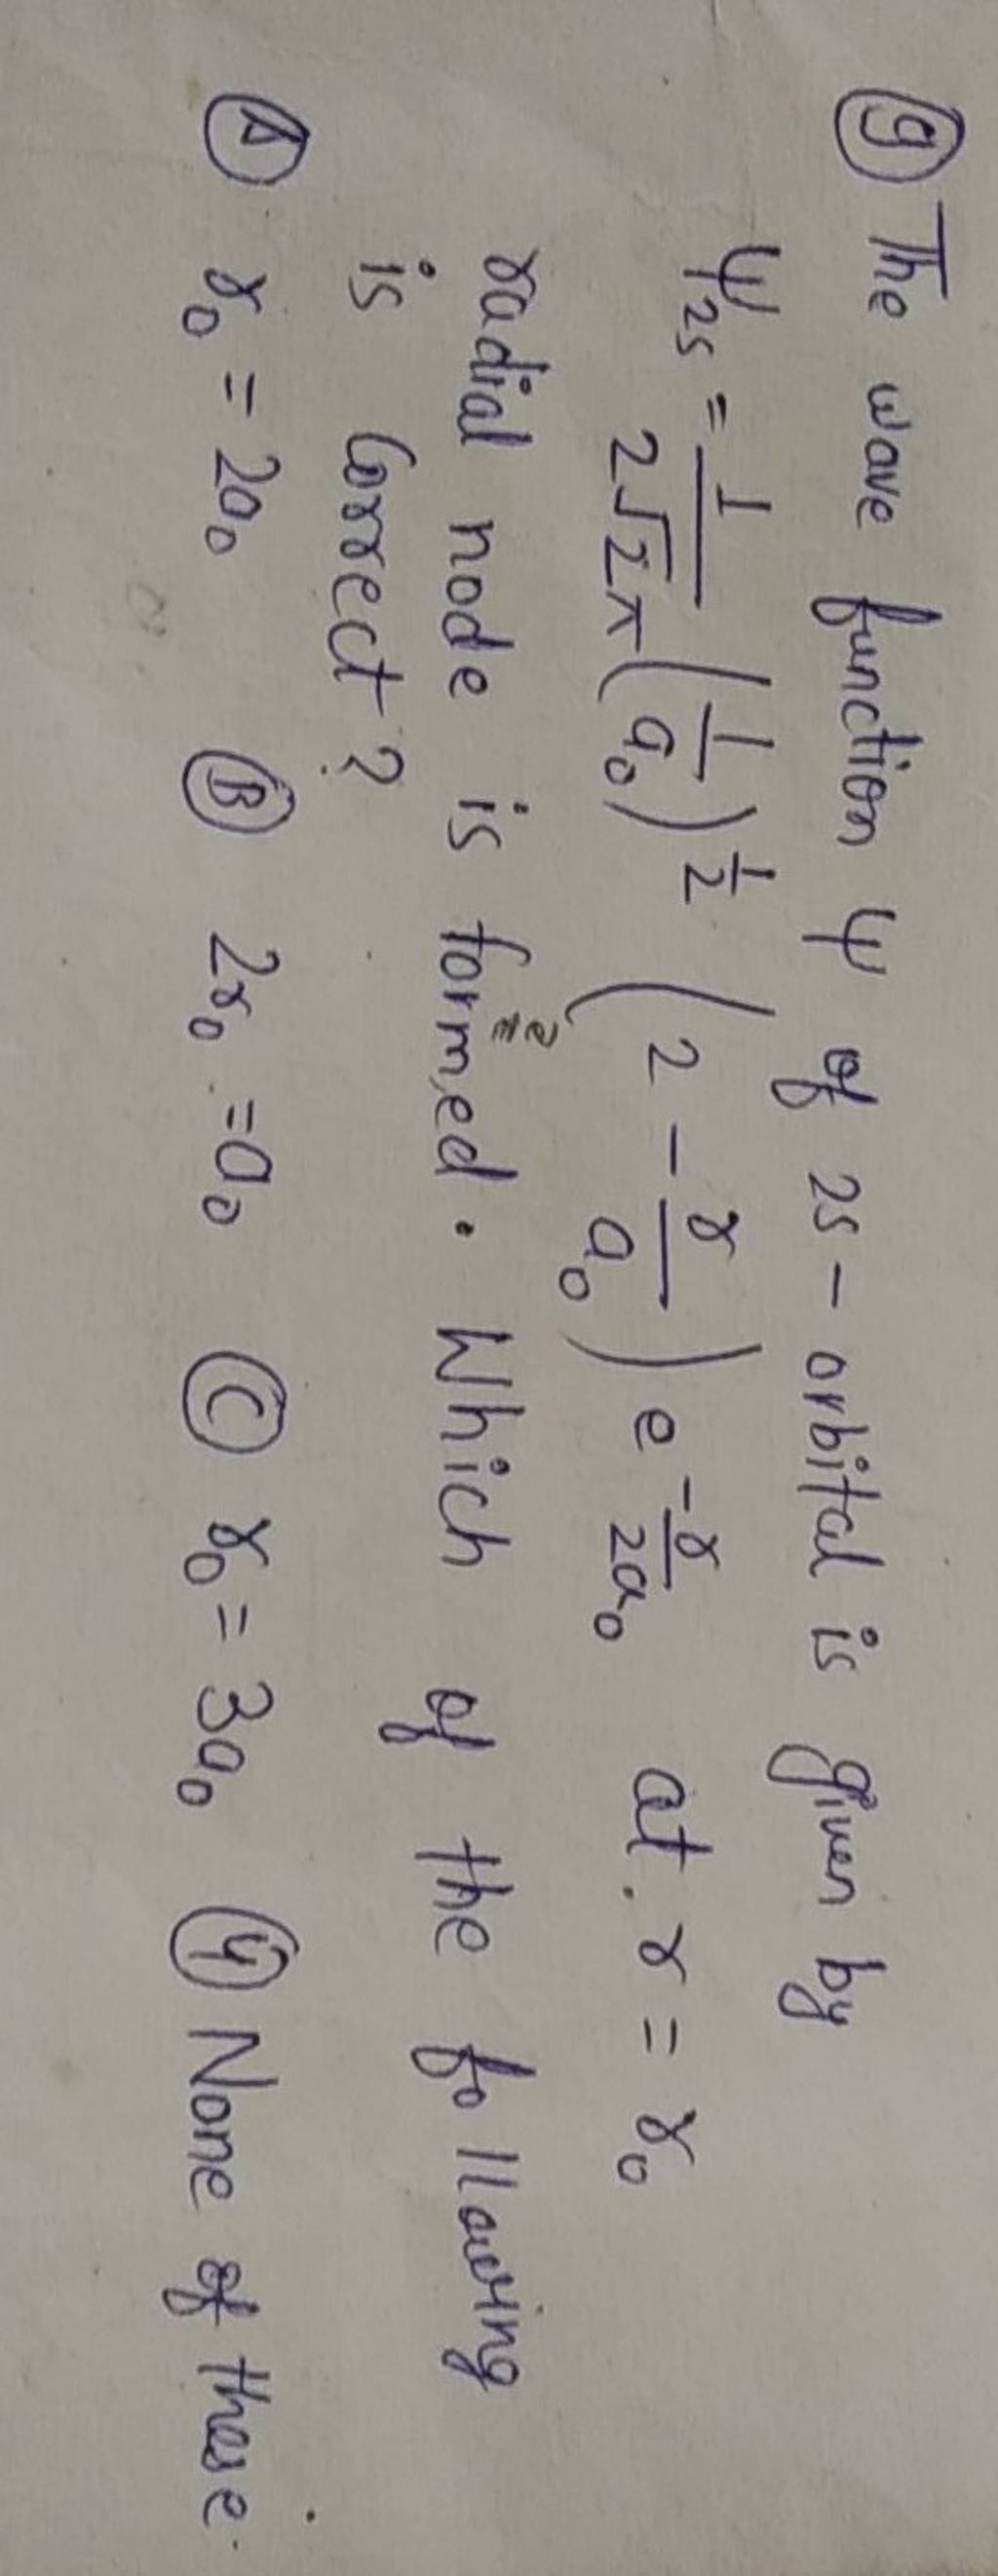 9 The wave function ψ of 2s - orbital is given by
ψ2s = 1/(2√2π) (1/a₀)^(1/2) (2 - r/a₀) e^(-r/2a₀) at r = r₀
radial node is formed. Which of the following
is Correct?
A r₀ = 2a₀ B 2r₀ = a₀ C r₀ = 3a₀ 4 None of these.